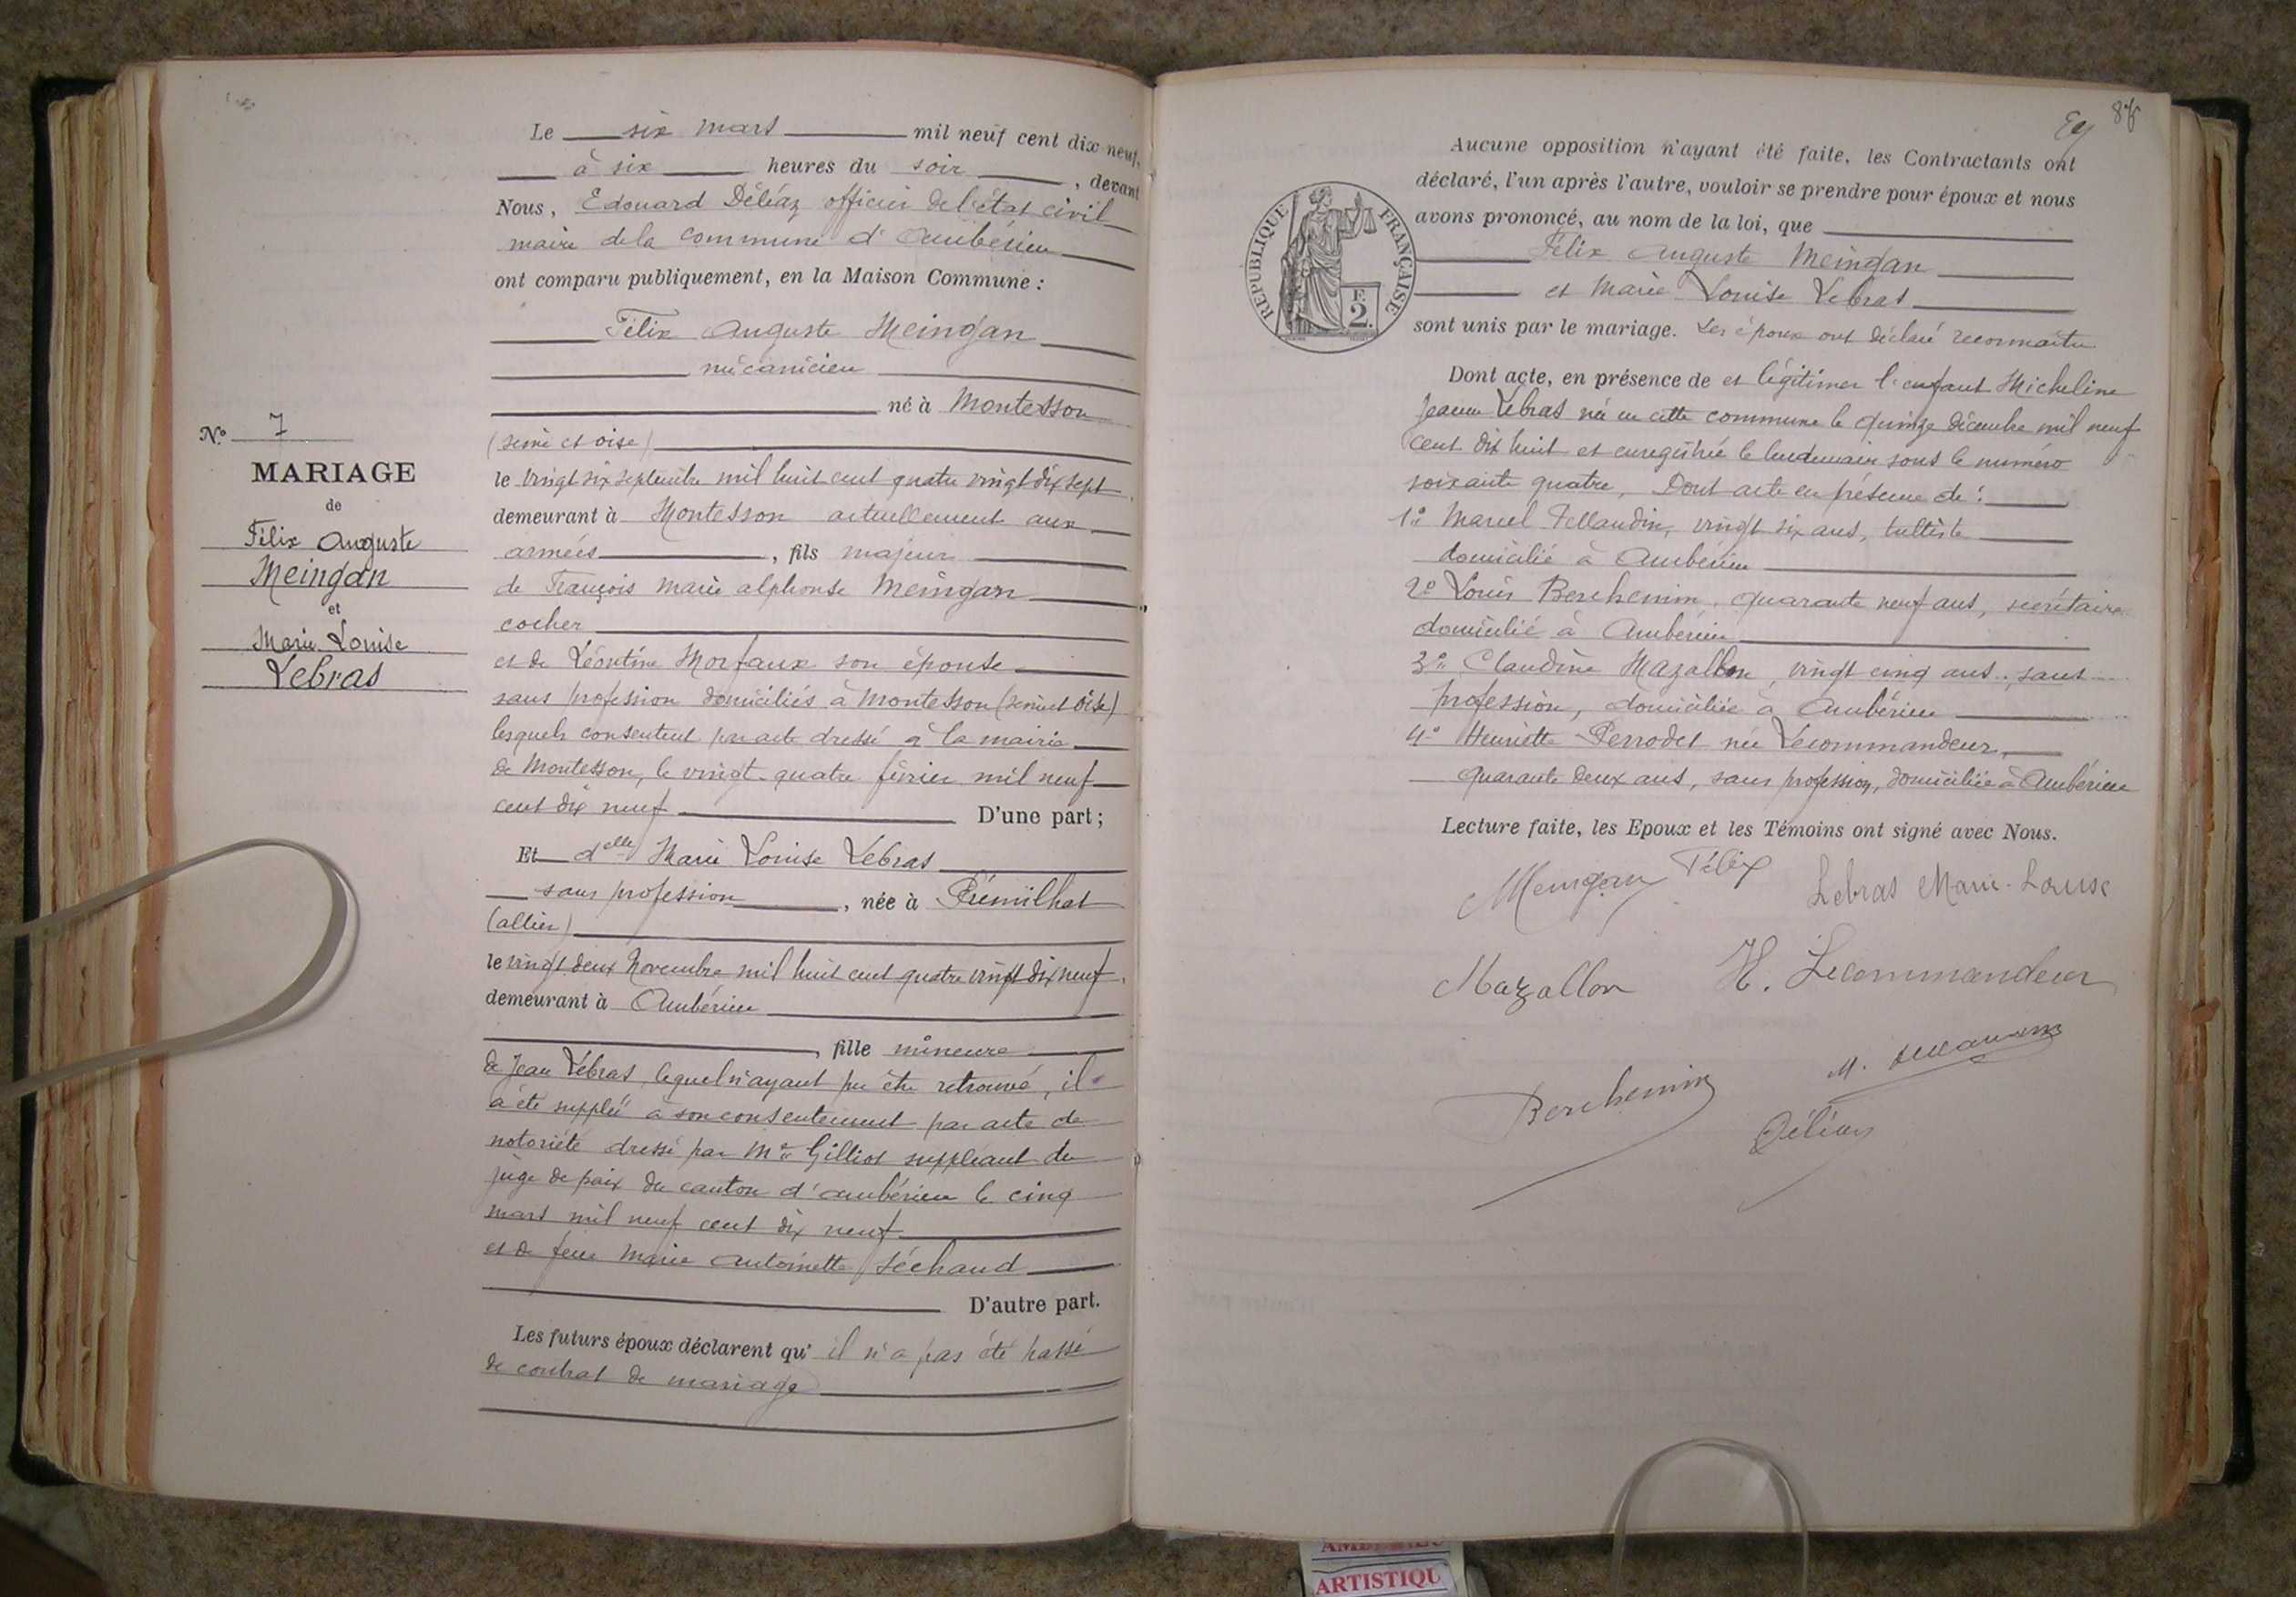 Le six mars mil neuf cent dix-neuf,
à six heures du soir, devant
Nous, Edouard Déléaz officier de l'état civil
maire de la commune d'Ambérieu
ont comparu publiquement, en la Maison Commune :
Félix Auguste Meingan
mécanicien
né à Montesson
(seine et oise)
le vingt six septembre mil huit cent quatre vingt dix sept
demeurant à Montesson actuellement aux
armées, fils majeur
de François Marie alphonse Meingan
cocher
et de Léontine Morfaux son épouse
sans profession domiciliés à Montesson (seine et oise)
lesquels consentent par acte dressé à la mairie
de Montesson, le vingt-quatre février mil neuf
cent dix neuf D'une part ;
Et delle Marie Louise Lebras
sans profession, née à Prémilhat
(allier)
le vingt deux Novembre mil huit cent quatre vingt dix neuf.
demeurant à Ambérieu
, fille mineure
de Jean Lebras, lequel n'ayant pu être retrouvé, il
a été suppléé à son consentement par acte de
notoriété dressé par Me Gilliot suppléant du
juge de paix du canton d'ambérieu le cinq
mars mil neuf cent dix neuf
et de feue Marie Antoinette Séchaud
D'autre part.
Les futurs époux déclarent qu' il n'a pas été passé
de contrat de mariage
No 7
MARIAGE
de
Félix Auguste
Meingan
et
Marie Louise
Lebras
87
Aucune opposition n'ayant été faite, les Contractants ont
déclaré, l'un après l'autre, vouloir se prendre pour époux et nous
avons prononcé, au nom de la loi, que
Félix Auguste Meingan
et Marie Louise Lebras
sont unis par le mariage. Les époux ont déclaré reconnaître
Dont acte, en présence de et légitimer l'enfant Micheline
Jeanne Lebras née en cette commune le quinze décembre mil neuf
cent dix huit et enregistrée le lendemain sous le numéro
soixante quatre, Dont acte en présence de :
1o Marcel Tellandin, vingt six ans, tulliste
domicilié à Ambérieu
2o Louis Berchemin, quarante neuf ans, secrétaire
domicilié à Ambérieu
3o Claudine Mazallon, vingt cinq ans, sans
profession, domiciliée à Ambérieu
4o Henriette Perrodet née Lecommandeur,
quarante deux ans, sans profession, domiciliée à Ambérieu
Lecture faite, les Epoux et les Témoins ont signé avec Nous.
Meingan Félix
Lebras Marie-Louise
Mazallon
H. Lecommandeur
Berchemin
Déléaz
RÉPUBLIQUE FRANÇAISE
F.
2.
ARTISTIQU